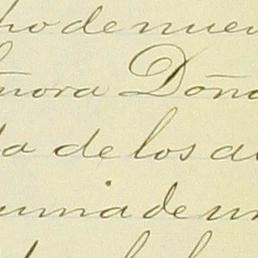 ho de nuev
ñora Doña
da de los a
umia de un